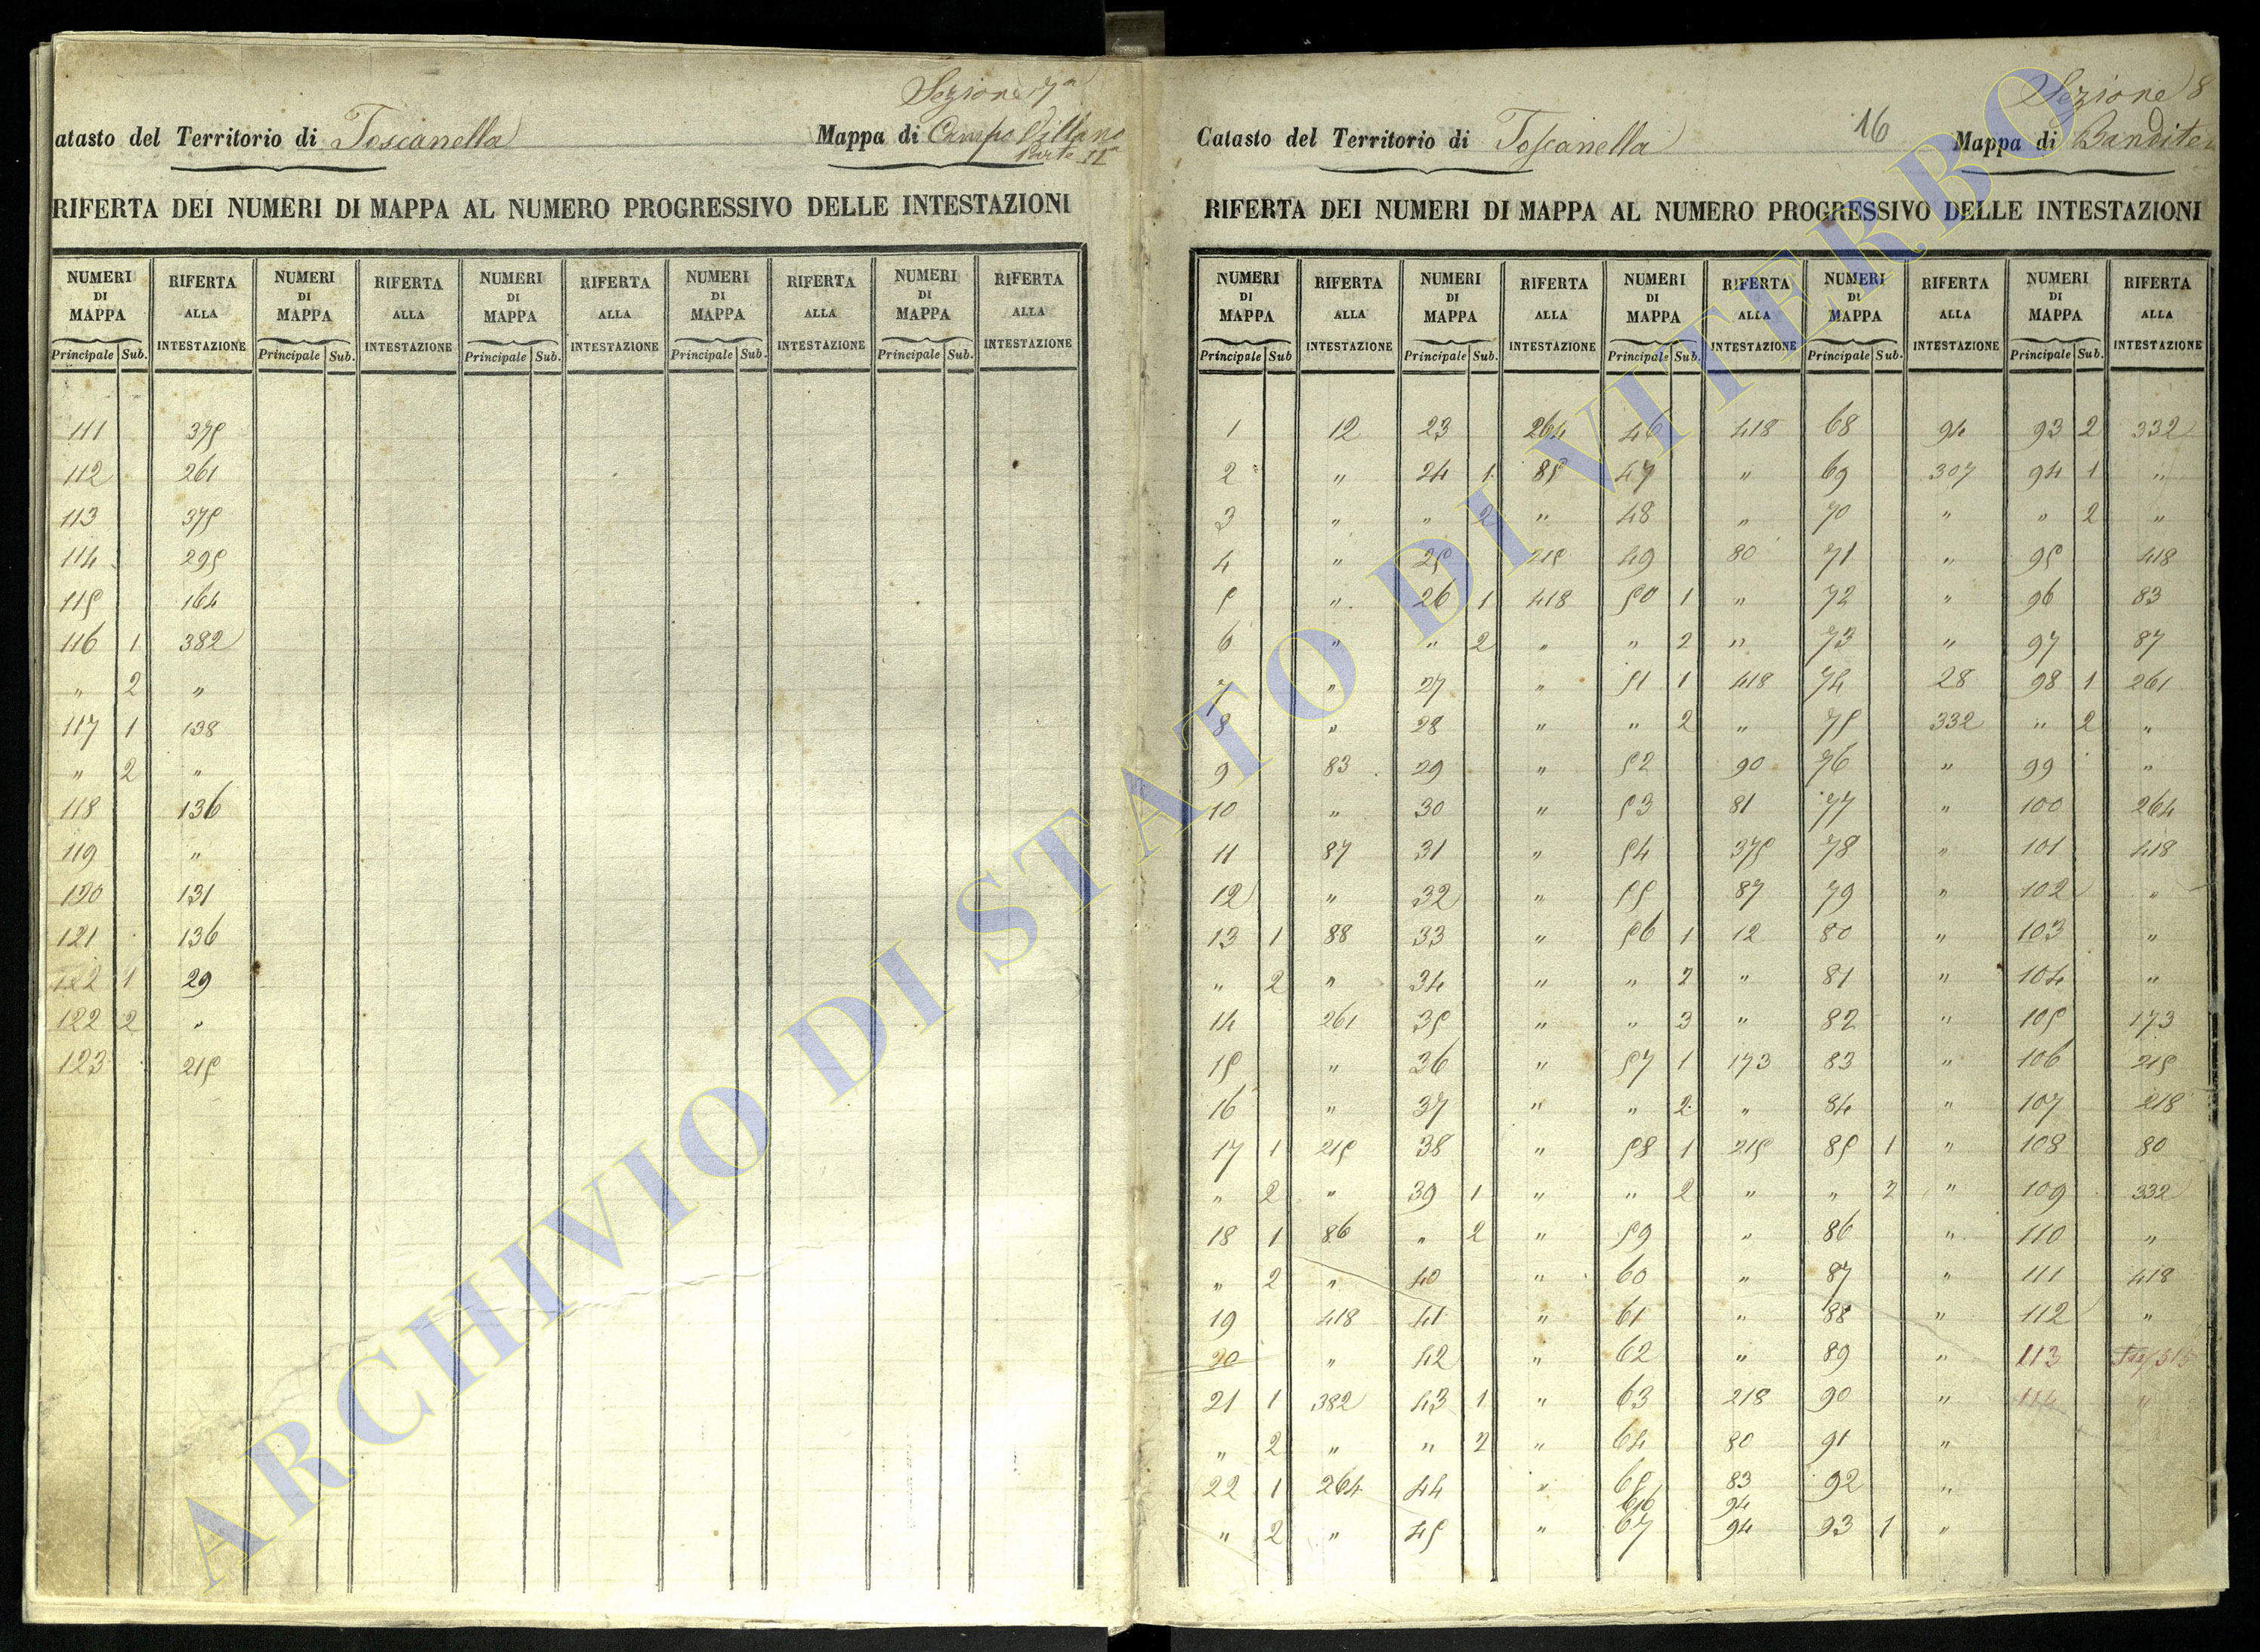 Sezione 7a
atasto del Territorio di Toscanella Mappa di Campo Villano
Parte IIa
RIFERTA DEI NUMERI DI MAPPA AL NUMERO PROGRESSIVO DELLE INTESTAZIONI
NUMERI DI MAPPA RIFERTA ALLA INTESTAZIONE NUMERI DI MAPPA RIFERTA ALLA INTESTAZIONE NUMERI DI MAPPA RIFERTA ALLA INTESTAZIONE NUMERI DI MAPPA RIFERTA ALLA INTESTAZIONE NUMERI DI MAPPA RIFERTA ALLA INTESTAZIONE
Principale Sub. Principale Sub. Principale Sub. Principale Sub. Principale Sub.
111 375
112 261
113 375
114 295
115 164
116 1 382
" 2 "
117 1 138
" 2 "
118 136
119 "
120 131
121 136
122 1 29
122 2 "
123 215
Sezione 8
16
Catasto del Territorio di Toscanella Mappa di Bandite
RIFERTA DEI NUMERI DI MAPPA AL NUMERO PROGRESSIVO DELLE INTESTAZIONI
NUMERI DI MAPPA RIFERTA ALLA INTESTAZIONE NUMERI DI MAPPA RIFERTA ALLA INTESTAZIONE NUMERI DI MAPPA RIFERTA ALLA INTESTAZIONE NUMERI DI MAPPA RIFERTA ALLA INTESTAZIONE NUMERI DI MAPPA RIFERTA ALLA INTESTAZIONE
Principale Sub Principale Sub. Principale Sub. Principale Sub. Principale Sub.
1 12 23 264 46 418 68 94 93 2 332
2 " 24 1 85 47 " 69 307 94 1 "
3 " " 2 " 48 " 70 " " 2 "
4 " 25 215 49 80 71 " 95 418
5 " 26 1 418 50 1 " 72 " 96 83
6 " " 2 " " 2 " 73 " 97 87
7 " 27 " 51 1 418 74 28 98 1 261
8 " 28 " " 2 " 75 332 " 2 "
9 83 29 " 52 90 76 " 99 "
10 " 30 " 53 81 77 " 100 264
11 87 31 " 54 375 78 " 101 418
12 " 32 " 55 87 79 " 102 "
13 1 88 33 " 56 1 12 80 " 103 "
" 2 " 34 " " 2 " 81 " 104 "
14 261 35 " " 3 " 82 " 105 173
15 " 36 " 57 1 173 83 " 106 215
16 " 37 " " 2 " 84 " 107 218
17 1 215 38 " 58 1 215 85 1 " 108 80
" 2 " 39 1 " " 2 " " 2 " 109 332
18 1 86 " 2 " 59 " 86 " 110 "
" 2 " 40 " 60 " 87 " 111 418
19 418 41 " 61 " 88 " 112 "
20 " 42 " 62 " 89 " 113
21 1 382 43 1 " 63 218 90 " 114 "
" 2 " " 2 " 64 80 91 "
22 1 264 44 " 65 83 92 "
66 94
" 2 " 45 " 67 94 93 1 "
ARCHIVIO DI STATO DI VITERBO